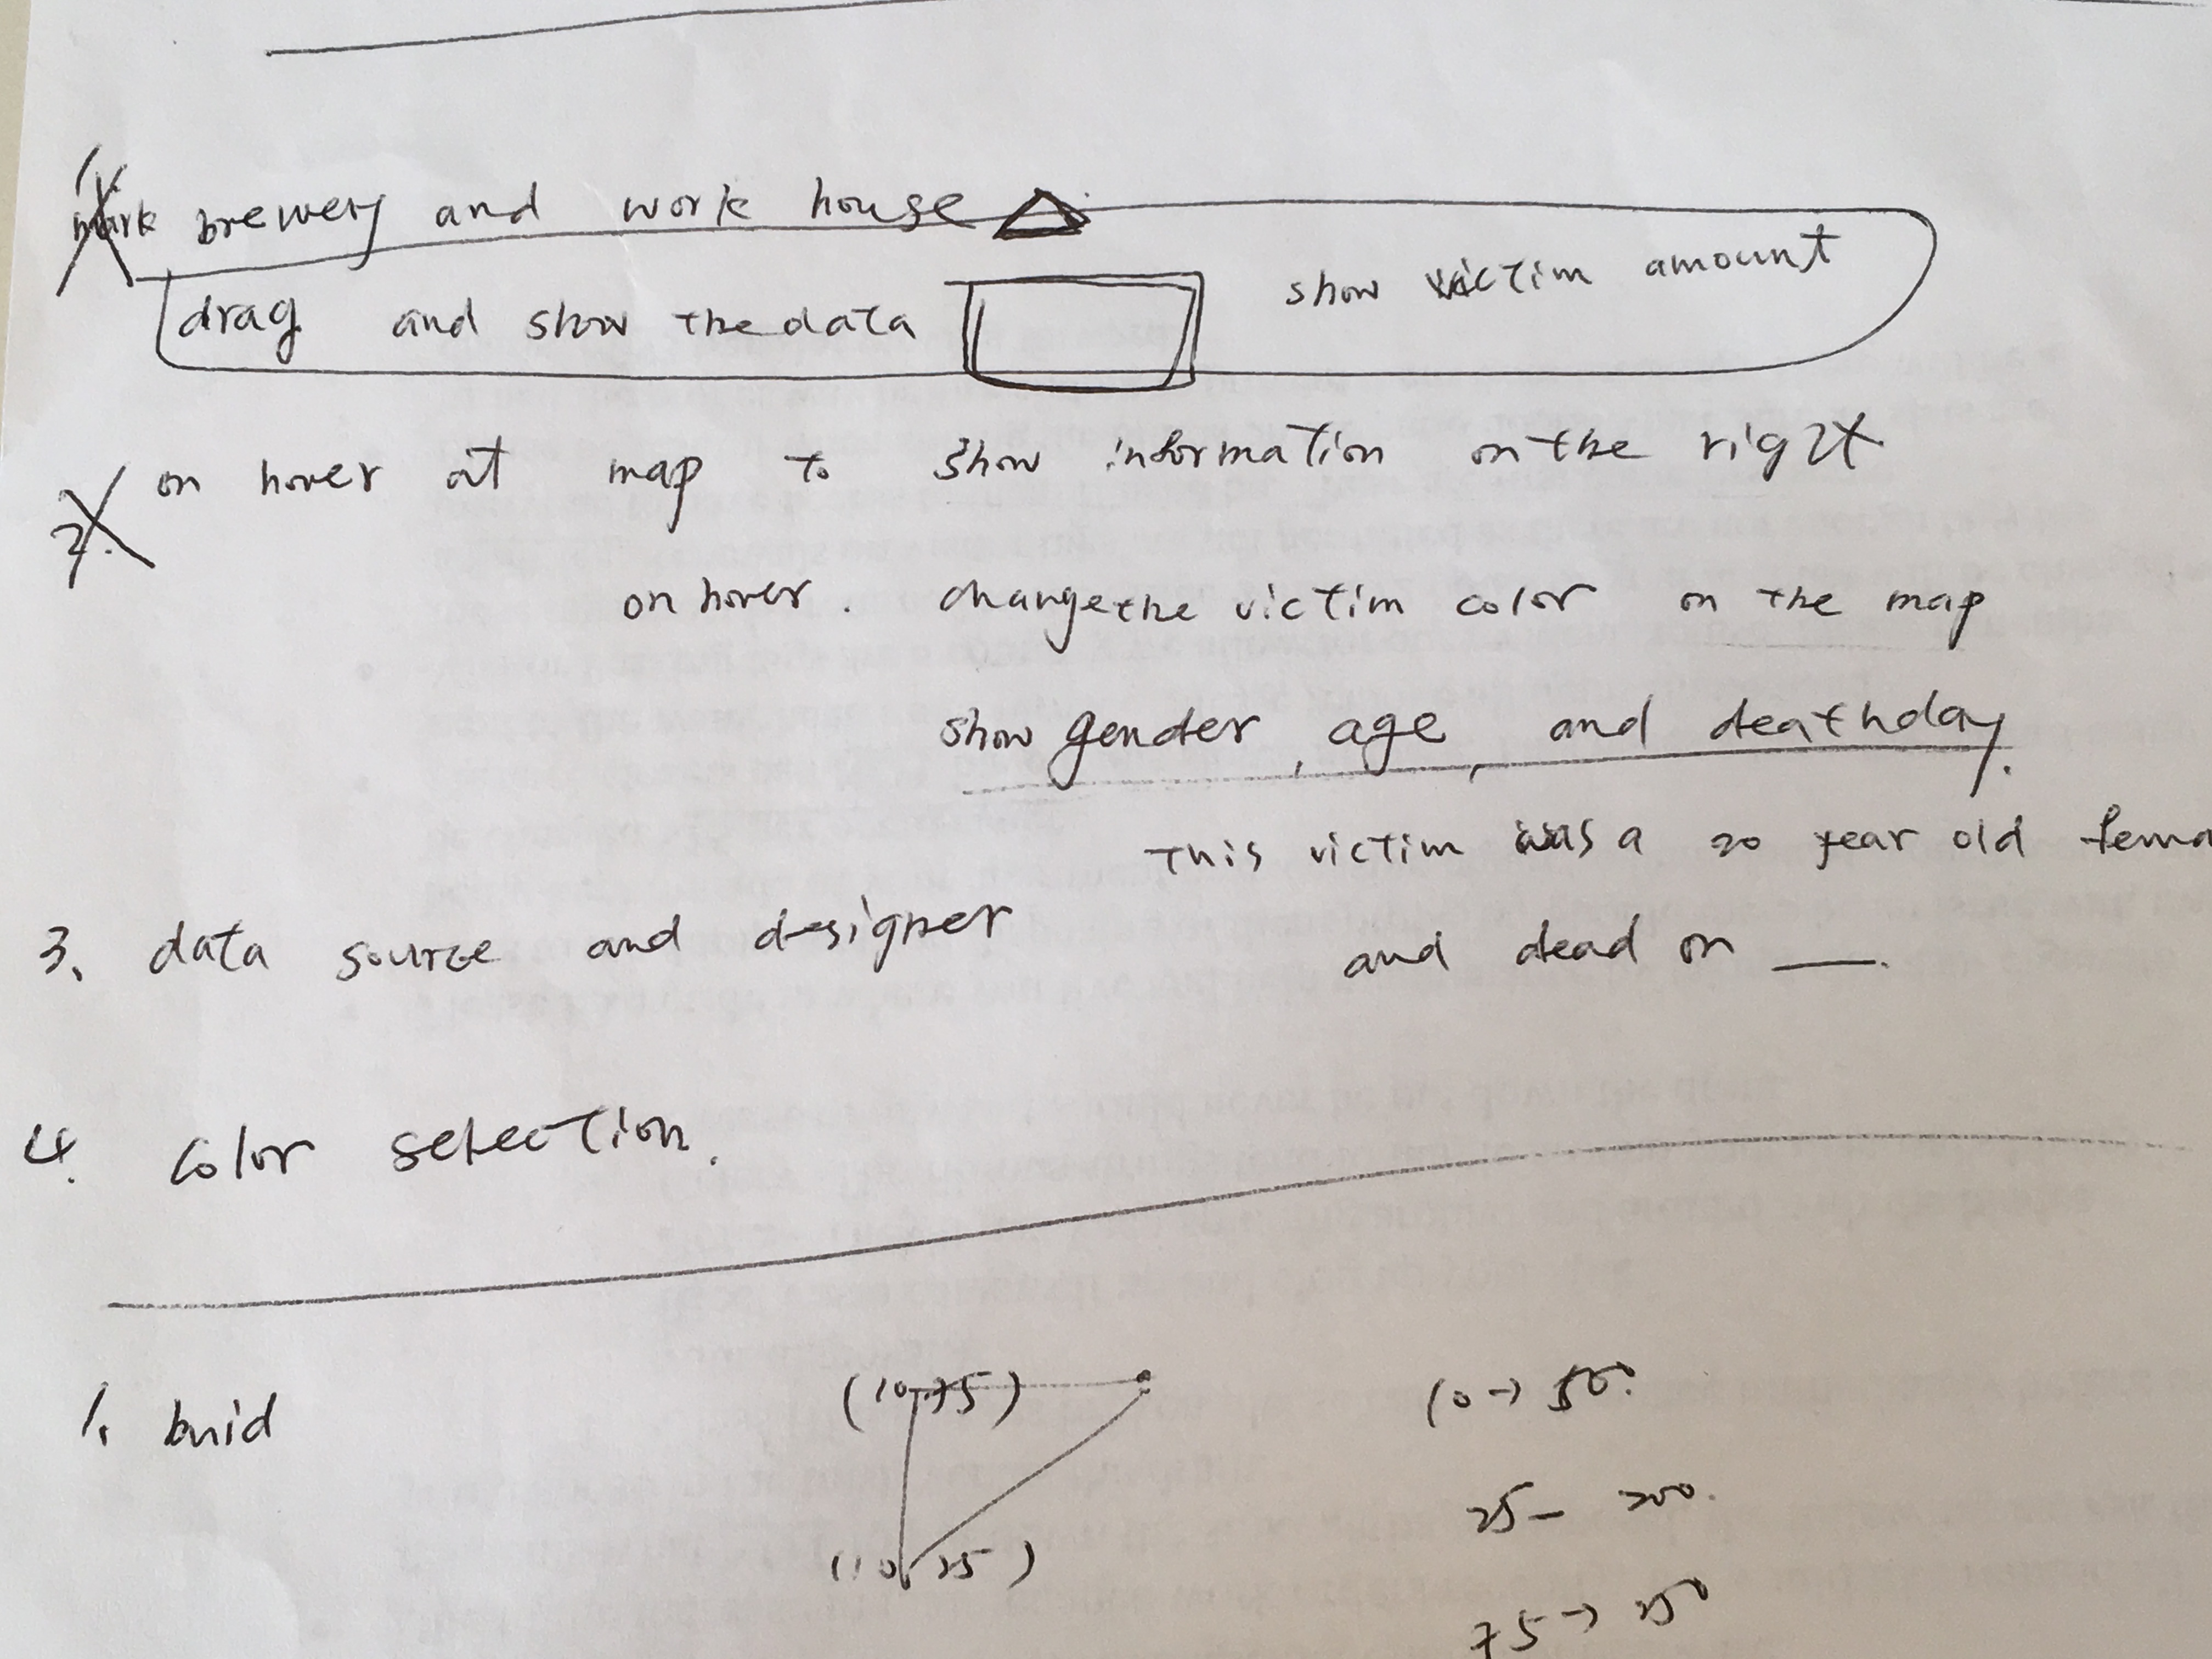 1.
mark brewery and work house
drag and show the data show victim amount
2. on hover at map to show information on the right
on hover. change the victim color on the map
show gender, age, and deathday.
This victim was a 20 year old fema
3. data source and designer
and dead on __.
4. color selection.
1. buid
(10, 75)
(10, 25)
10 → 50.
25 - 200.
75 → 250